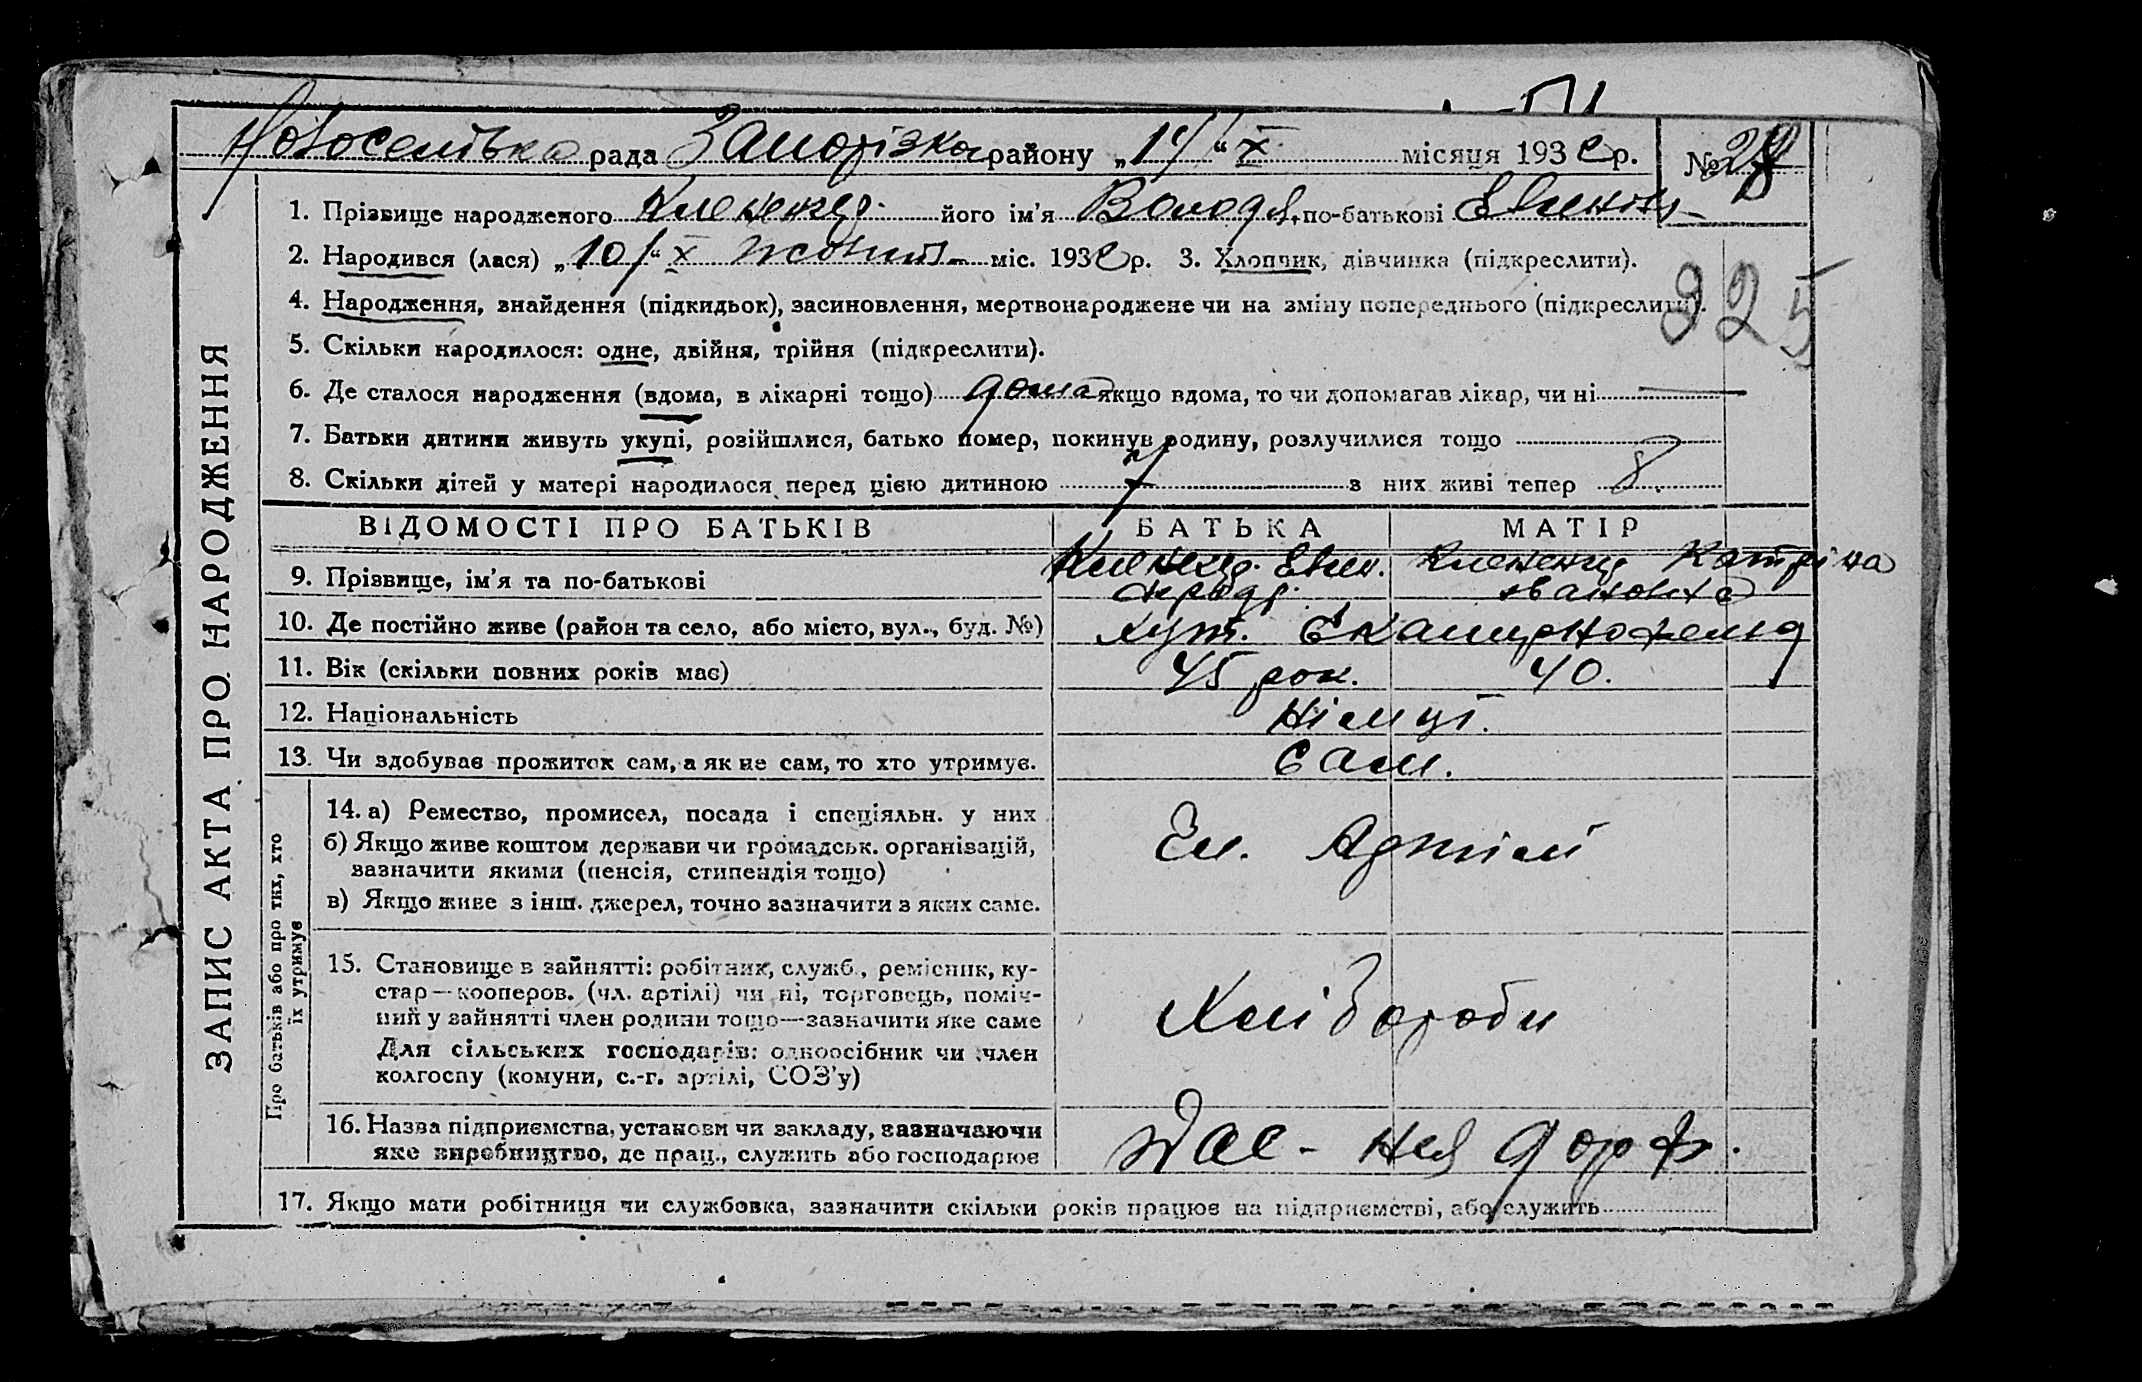 Новоселівка рада Запорізька району „14“ X місяця 193 р. №
925
1. Прізвище народженого його ім'я Володя, по-батькові
2. Народився (лася) „10“ X міс. 193 р. 3. Хлопчик, дівчинка (підкреслити).
4. Народження, знайдення (підкидьок), засиновлення, мертвонароджене чи на зміну попереднього (підкреслити).
5. Скільки народилося: одне, двійня, трійня (підкреслити).
6. Де сталося народження (вдома, в лікарні тощо) дома якщо вдома, то чи допомагав лікар, чи ні —
7. Батьки дитини живуть укупі, розійшлися, батько помер, покинув родину, розлучилися тощо
8. Скільки дітей у матері народилося перед цією дитиною з них живі тепер 8.
ВІДОМОСТІ ПРО БАТЬКІВ БАТЬКА МАТІР
9. Прізвище, ім'я та по-батькові Катріна
10. Де постійно живе (район та село, або місто, вул., буд. №) хут.
11. Вік (скільки повних років має) 45 рок. 40.
12. Національність Німці.
13. Чи здобуває прожиток сам, а як не сам, то хто утримує. Сам.
14. а) Ремество, промисел, посада і спеціяльн. у них
б) Якщо живе коштом держави чи громадськ. організацій,
зазначити якими (пенсія, стипендія тощо)
Чл. Артілі
в) Якщо живе з інш. джерел, точно зазначити з яких саме.
15. Становище в зайнятті: робітник, служб., ремісник, ку-
стар—кооперов. (чл. артілі) чи ні, торговець, поміч-
ний у зайнятті член родини тощо—зазначити яке саме
Хлібороби
Для сільських господарів: одноосібник чи член
колгоспу (комуни, с.-г. артілі, СОЗ'у)
16. Назва підприємства, установи чи закладу, зазначаючи
яке виробництво, де прац., служить або господарює
дорф.
17. Якщо мати робітниця чи службовка, зазначити скільки років працює на підприємстві, або служить
ЗАПИС АКТА ПРО НАРОДЖЕННЯ
Про батьків або про тих, хто
їх утримує